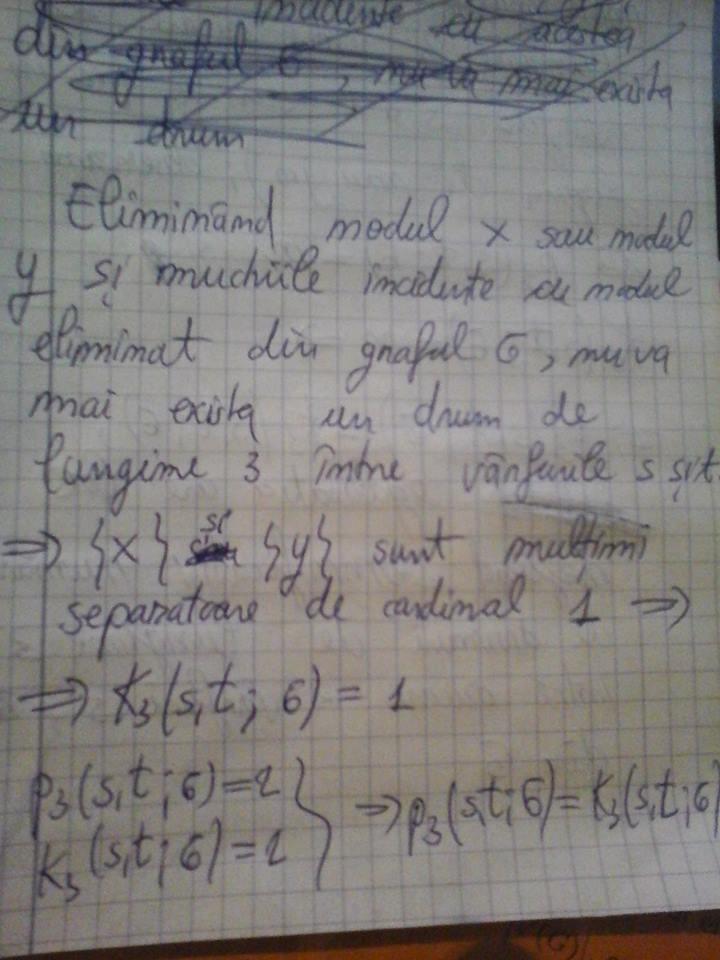 incidente cu acestea
din graful G, nu va mai exista
un drum
Eliminând nodul x sau nodul
y și muchiile incidente cu nodul
eliminat din graful G, nu va
mai exista un drum de
lungime 3 între vârfurile s și t.
=> {x} și {y} sunt mulțimi
separatoare de cardinal 1 =>
=> K₃(s,t; G) = 1
p₃(s,t; G) = 1 } => p₃(s,t; G) = K₃(s,t; G)
K₃(s,t; G) = 1